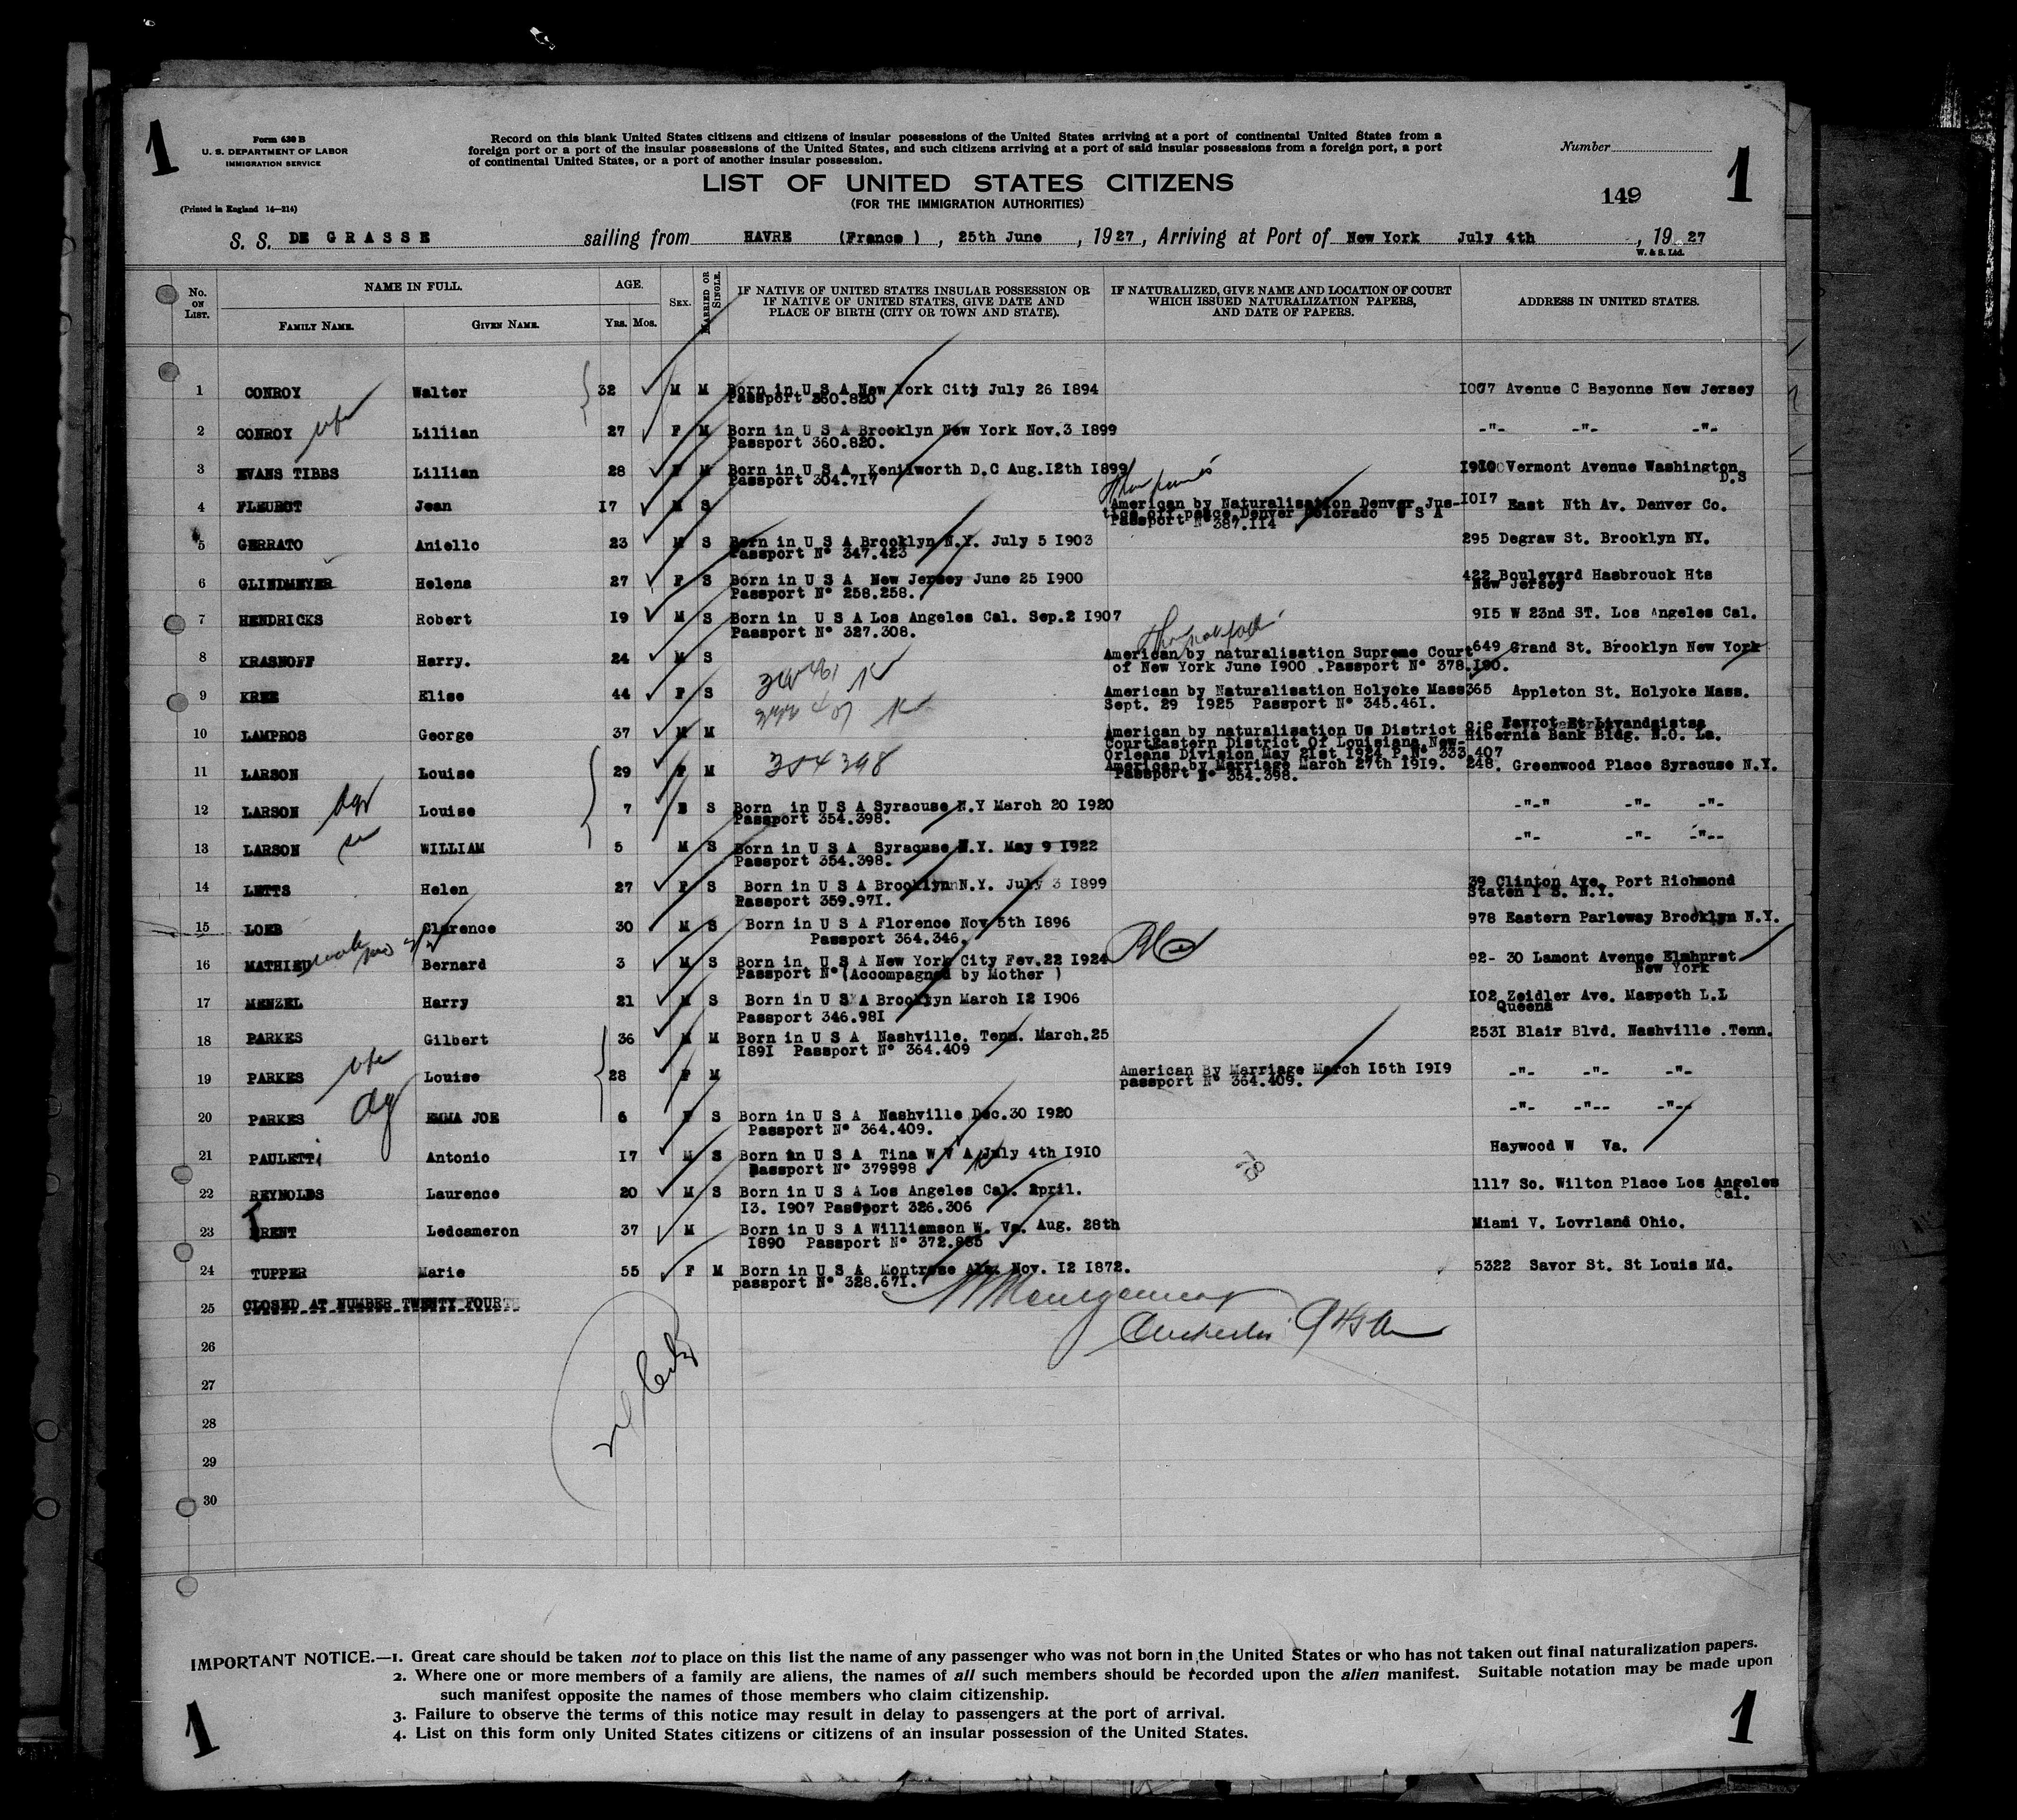 1
1
Form 630 B
U. S. DEPARTMENT OF LABOR
IMMIGRATION SERVICE
(Printed in England 14—214)
Record on this blank United States citizens and citizens of insular possessions of the United States arriving at a port of continental United States from a
foreign port or a port of the insular possessions of the United States, and such citizens arriving at a port of said insular possessions from a foreign port, a port
of continental United States, or a port of another insular possession.
Number
LIST OF UNITED STATES CITIZENS
(FOR THE IMMIGRATION AUTHORITIES)
149
S. S. DE GRASSE sailing from HAVRE (France ) , 25th June , 1927 , Arriving at Port of New York July 4th , 19 27
W. & S. Ltd.
No. ON LIST.
NAME IN FULL.
FAMILY NAME.
GIVEN NAME.
AGE.
YRS. MOS.
SEX.
MARRIED OR SINGLE.
IF NATIVE OF UNITED STATES INSULAR POSSESSION OR
IF NATIVE OF UNITED STATES, GIVE DATE AND
PLACE OF BIRTH (CITY OR TOWN AND STATE).
IF NATURALIZED, GIVE NAME AND LOCATION OF COURT
WHICH ISSUED NATURALIZATION PAPERS,
AND DATE OF PAPERS.
ADDRESS IN UNITED STATES.
1 CONROY Walter 32 M M Born in U S A New York City July 26 1894 1007 Avenue C Bayonne New Jersey
Passport 360.820
2 CONROY wife Lillian 27 F M Born in U S A Brooklyn New York Nov.3 1899 -"- -"- -"-
Passport 360.820.
3 EVANS TIBBS Lillian 28 F M Born in U S A Kenilworth D.C Aug.12th 1899 1910 Vermont Avenue Washington
Passport 304.717 D.S
4 FLEUROT Jean 17 M S American by Naturalisation Denver Jus- 1017 East Nth Av. Denver Co.
tice off peace Denver Colorado U S A
Passport N° 387.114
5 GERRATO Aniello 23 M S Born in U S A Brooklyn N.Y. July 5 1903 295 Degraw St. Brooklyn NY.
Passport N° 347.423
6 GLINDMEYER Helena 27 F S Born in U S A New Jersey June 25 1900 422 Boulevard Hasbrouck Hts
Passport N° 258.258. New Jersey
7 HENDRICKS Robert 19 M S Born in U S A Los Angeles Cal. Sep.2 1907 915 W 23nd ST. Los Angeles Cal.
Passport N° 327.308.
8 KRASNOFF Harry. 24 M S American by naturalisation Supreme Court 649 Grand St. Brooklyn New York
of New York June 1900 .Passport N° 378.190.
9 KREE Elise 44 F S American by Naturalisation Holyoke Mass 365 Appleton St. Holyoke Mass.
Sept. 29 1925 Passport N° 345.461.
10 LAMPROS George 37 M M American by naturalisation Us District c:c Favrot Et Livaudsistsa
CourtEastern District Of Louisiana New- Hibernia Bank Bldg. N.O. La.
Orleans Division May 21st 1924 P.N° 333.407
11 LARSON Louise 29 F M 354398 American by Marriage March 27th 1919. 248. Greenwood Place Syracuse N.Y.
Passport N° 354.398.
12 LARSON Louise 7 S Born in U S A Syracuse N.Y March 20 1920 -"-" -"- -"-
Passport 354.398.
13 LARSON WILLIAM 5 M S Born in U S A Syracuse N.Y. May 9 1922 -"- -"- -"--
Passport 354.398.
14 LETTS Helen 27 F S Born in U S A Brooklyn N.Y. July 3 1899 39 Clinton Ave. Port Richmond
Passport 359.971. Staten I S. N.Y.
15 LOEB Clarence 30 M S Born in U S A Florence Nov 5th 1896 978 Eastern Parleway Brooklyn N.Y.
Passport 364.346.
16 MATHIEU Bernard 3 M S Born in U S A New York City Fev.22 1924 92- 30 Lamont Avenue Elmhurst
Passport N° (Accompagned by Mother ) New York
17 MENZEL Harry 21 M S Born in U S A Brooklyn March 12 1906 102 Zeidler Ave. Maspeth L.I
Passport 346.981 Queens
18 PARKES Gilbert 36 M M Born in U S A Nashville. Tenn. March.25 2531 Blair Blvd. Nashville .Tenn.
1891 Passport N° 364.409
19 PARKES wife Louise 28 F M American By Marriage March 15th 1919 -"- -"- -"-
passport N° 364.409.
20 PARKES EMMA JOE 6 F S Born in U S A Nashville Dec.30 1920 -"- -"-- -"--
Passport N° 364.409.
21 PAULETTi Antonio 17 M S Born in U S A Tina W V A July 4th 1910 Haywood W Va.
Passport N° 379898
22 REYNOLDS Laurence 20 M S Born in U S A Los Angeles Cal. April. 1117 So. Wilton Place Los Angeles
13. 1907 Passport 326.306 Cal.
23 TRENT Ledcameron 37 M Born in U S A Williamson W. Va. Aug. 28th Miami V. Lovrland Ohio.
1890 Passport N° 372.865
24 TUPPER Marie 55 F M Born in U S A Montrose Ala. Nov. 12 1872. 5322 Savor St. St Louis Md.
passport N° 328.671.
25 CLOSED AT NUMBER TWENTY FOURTH
26
27
28
29
30
IMPORTANT NOTICE.—1. Great care should be taken not to place on this list the name of any passenger who was not born in the United States or who has not taken out final naturalization papers.
2. Where one or more members of a family are aliens, the names of all such members should be recorded upon the alien manifest. Suitable notation may be made upon
such manifest opposite the names of those members who claim citizenship.
3. Failure to observe the terms of this notice may result in delay to passengers at the port of arrival.
4. List on this form only United States citizens or citizens of an insular possession of the United States.
1
1